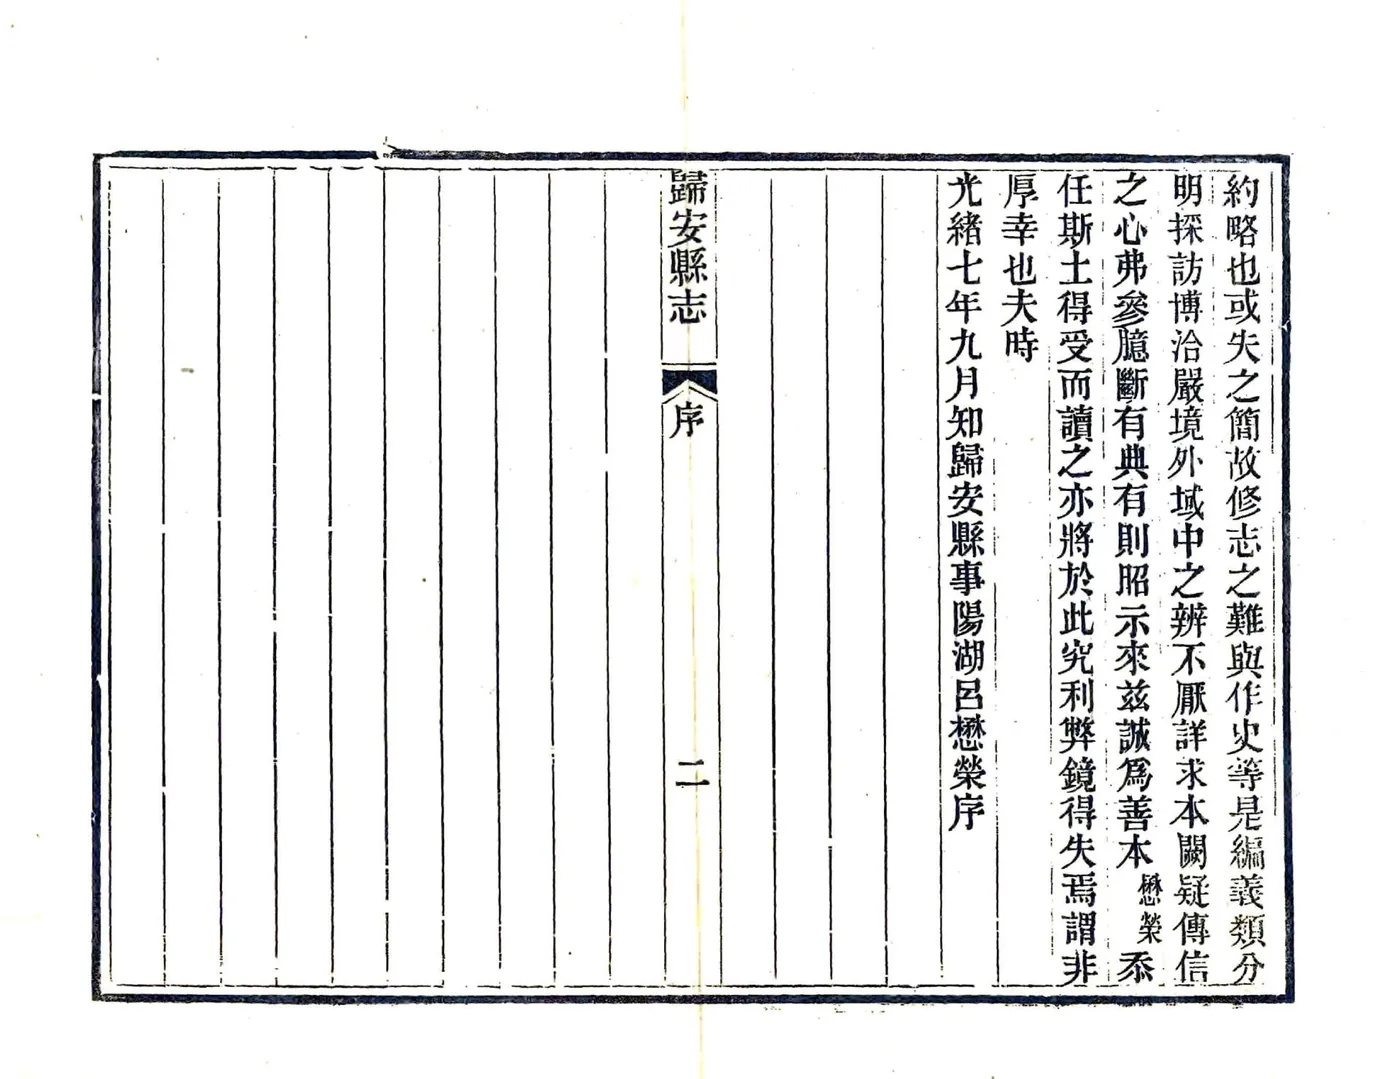 約略也或失之簡故修志之難與作史等是編義類分
明探訪博洽嚴境外域中之辨不厭詳求本闕疑傳信
之心弗參臆斷有典有則昭示來茲誠為善本懋榮忝
任斯土得受而讀之亦將於此究利弊鏡得失焉謂非
厚幸也夫時
光緒七年九月知歸安縣事陽湖呂懋榮序
歸安縣志
序
二